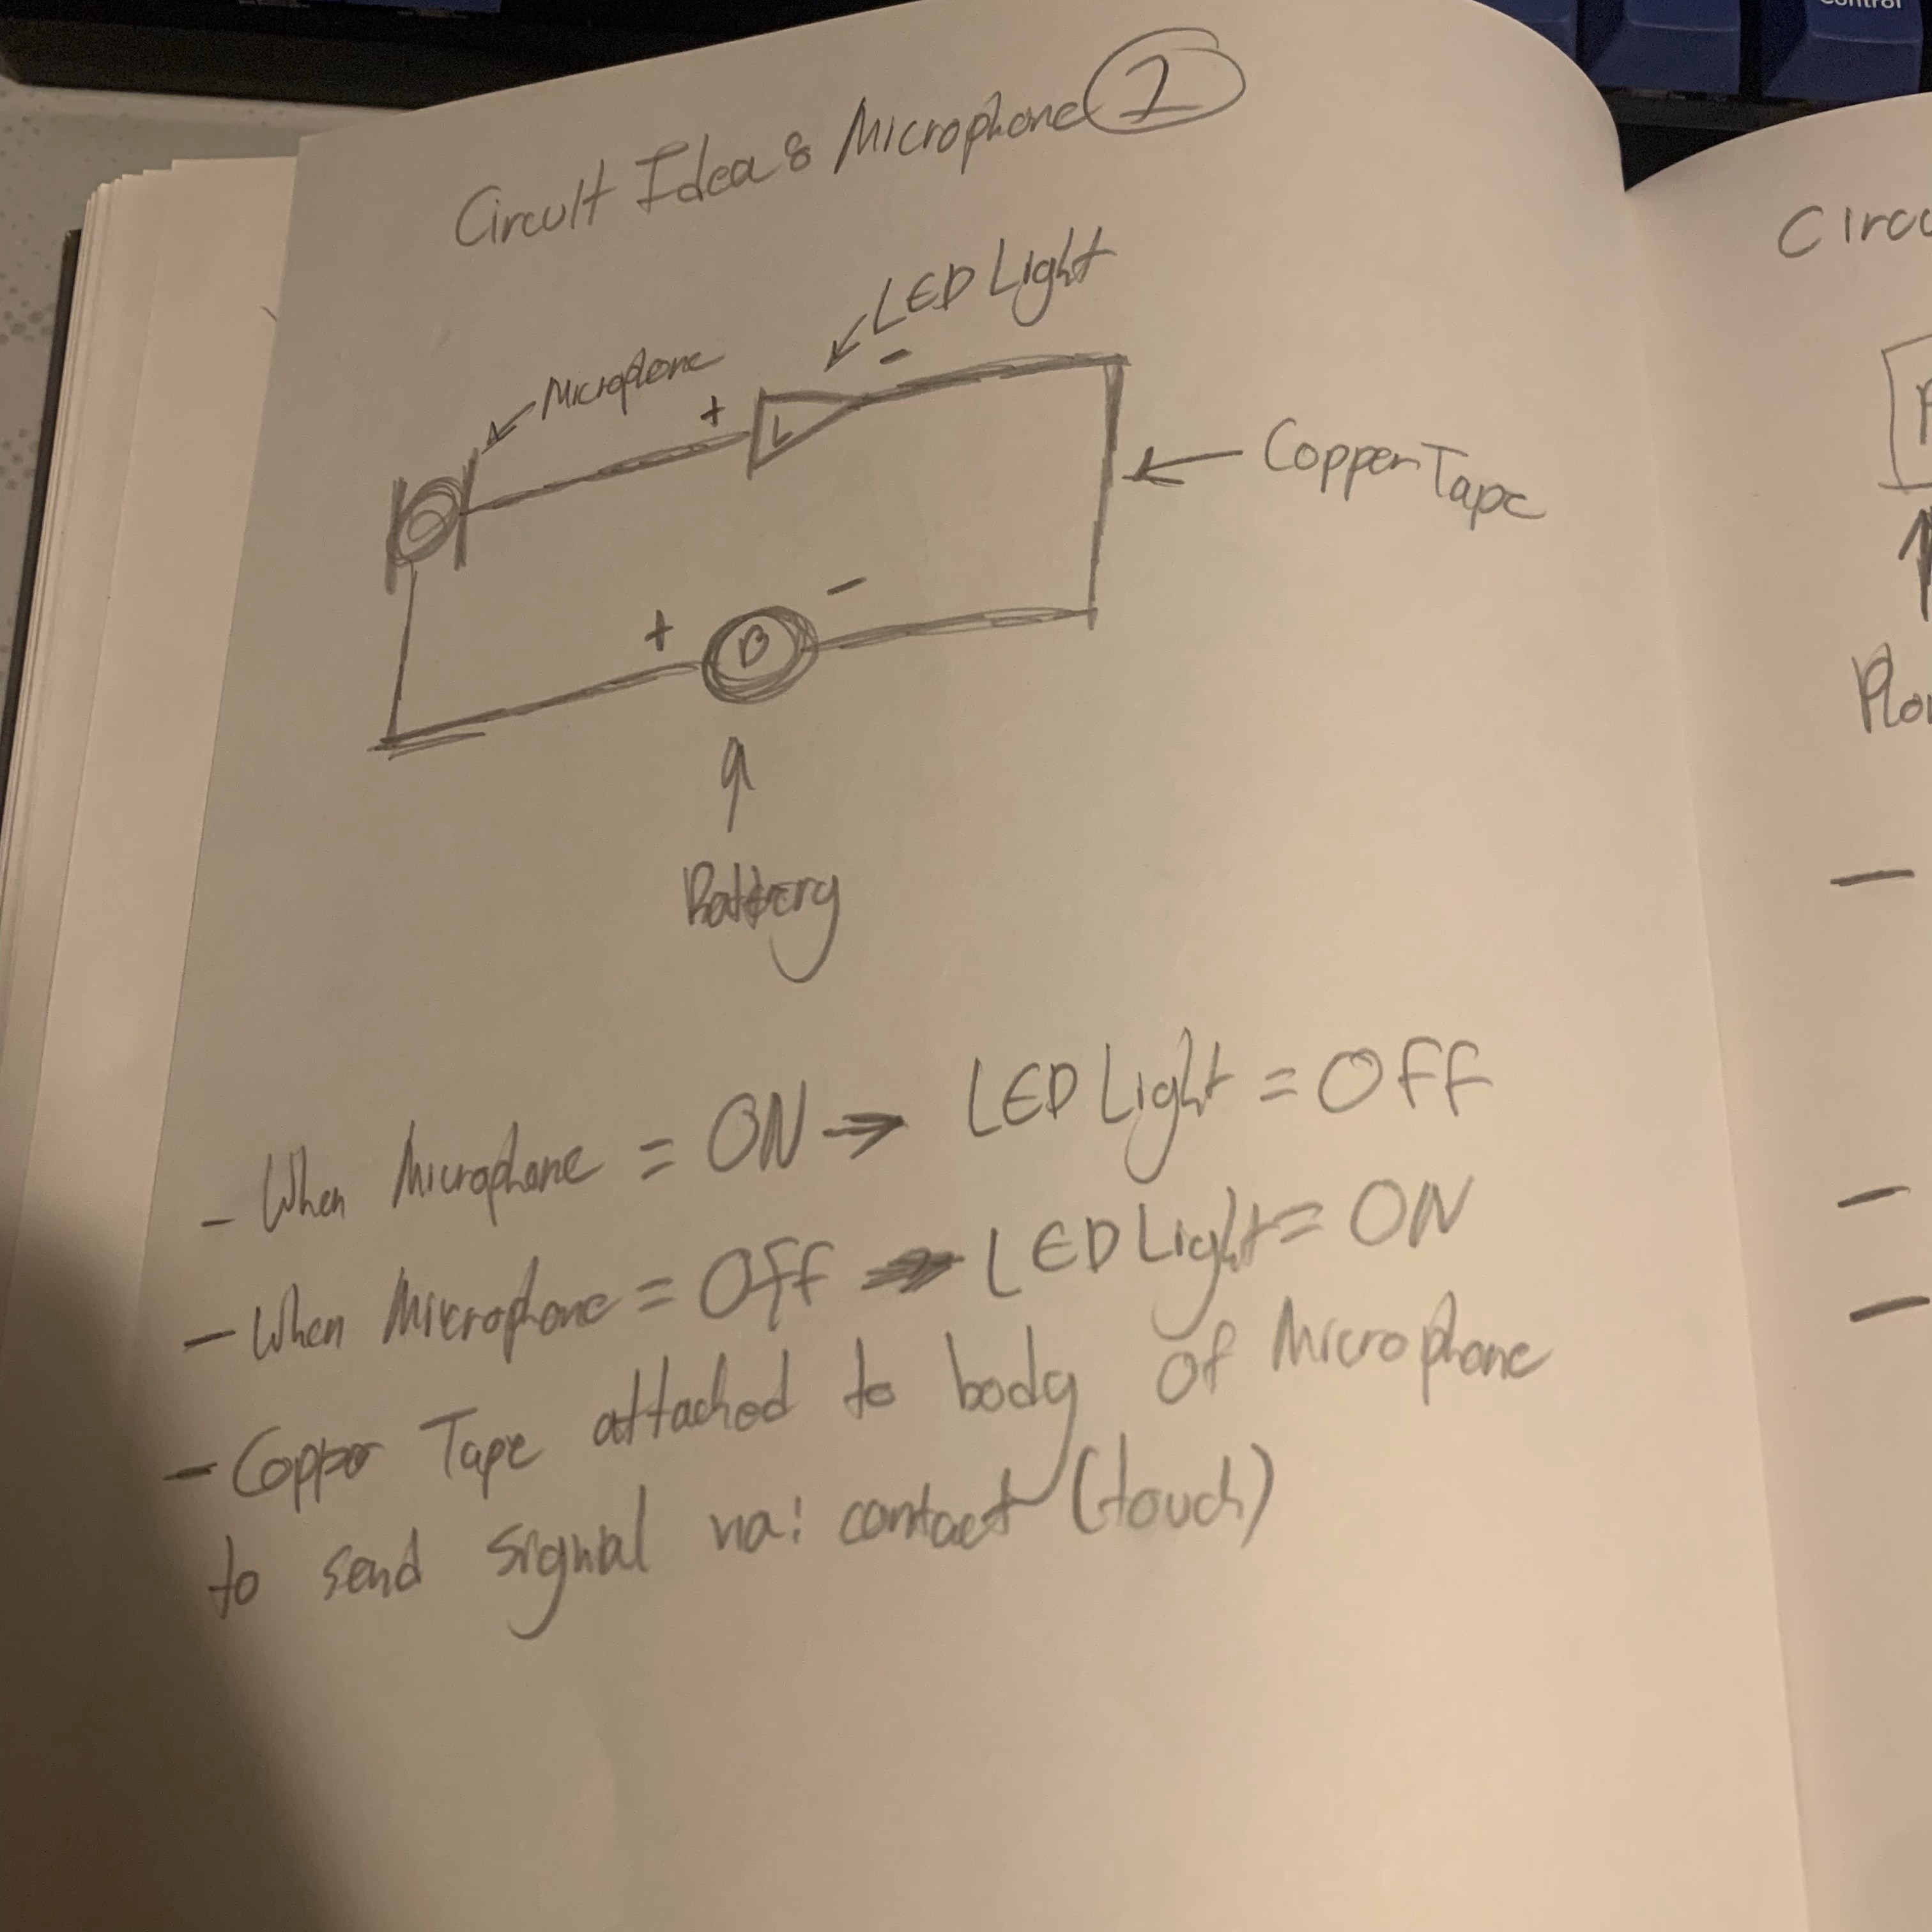 Control
Circuit Idea: Microphone 1
LED Light
Microphone
+
-
L
Copper Tape
+
-
B
Battery
- When Microphone = ON → LED Light = OFF
- When Microphone = Off → LED Light = ON
- Copper Tape attached to body of Microphone
to send signal via: contact (touch)